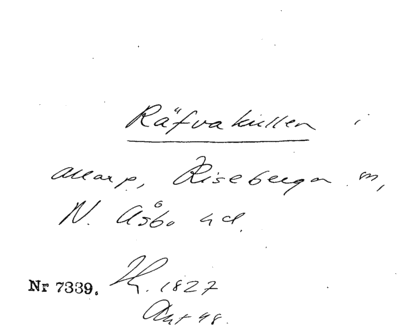 Räfvakullen i
Allarp, Riseberga sn,
N. Åsbo hd.
Nr 7339. 1827
Akt 48.